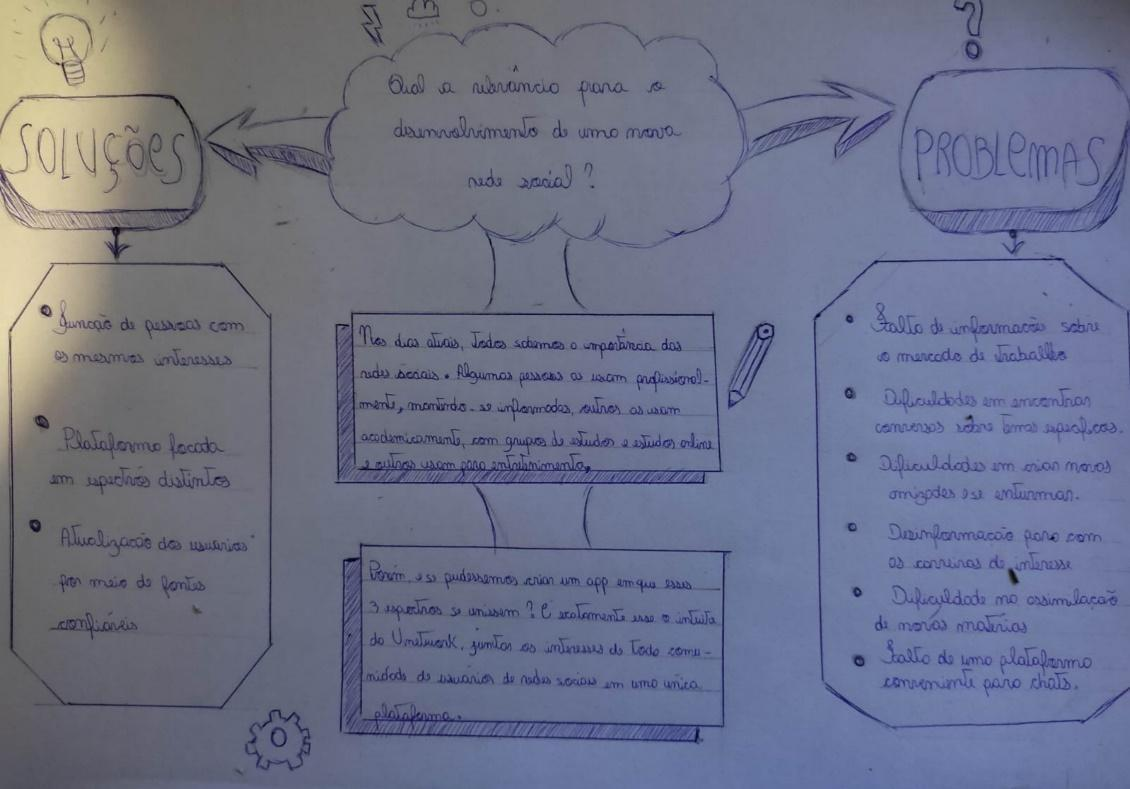 Qual a relevância para o
desenvolvimento de uma nova
rede social?
SOLUÇÕES
Junção de pessoas com
os mesmos interesses
Plataforma focada
em espectros distintos
Atualização dos usuários
por meio de fontes
confiáveis
Nos dias atuais, todos sabemos a importância das
redes sociais. Algumas pessoas as usam profissional-
mente, mantendo-se informadas, outros as usam
academicamente, com grupos de estudos e estudos online
e outros usam para entretenimento.
Porém, e se pudessemos criar um app em que esses
3 espectros se unissem? É exatamente esse o intuito
da Unetwork, juntar os interesses de toda comu-
nidade de usuários de redes sociais em uma única
plataforma.
PROBLEMAS
Falta de informação sobre
o mercado de trabalho
Dificuldades em encontrar
conversas sobre temas específicos.
Dificuldades em criar novas
amizades e se enturmar.
Desinformação para com
as carreiras de interesse
Dificuldade na assimilação
de novas matérias
Falta de uma plataforma
conveniente para chats.